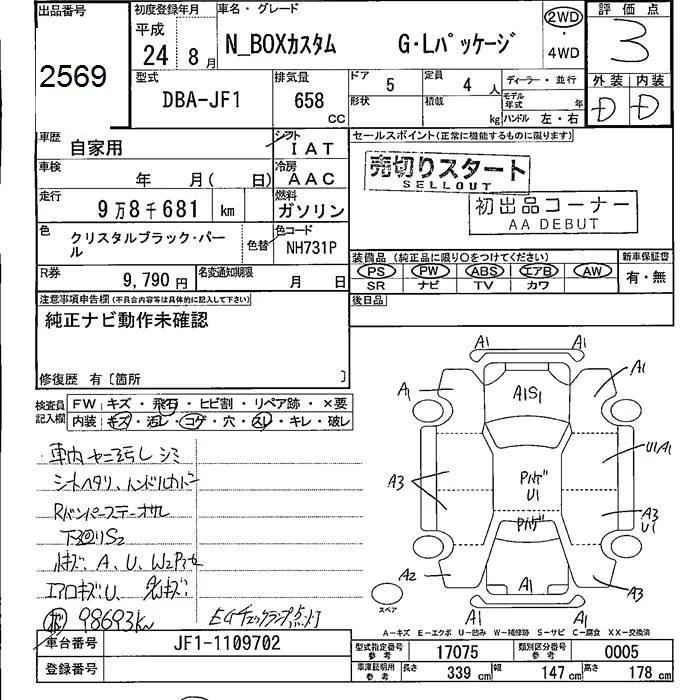 出品番号 初度登録年月 車名・グレード 評価点
2569 平成 24年 8月 N_BOXカスタム G・Lパッケージ 2WD・4WD 3
型式 排気量 ドア 5 定員 4人 ディーラー・並行 外装 内装
DBA-JF1 658 CC 形状 積載 kg モデル年式 年 ハンドル 左・右 D D
車歴 自家用 シフト IAT セールスポイント(正常に機能するものに限ります)
車検 年 月( 日) 冷房 AAC 売切りスタート
SELLOUT
走行 9万8千681 km 燃料 ガソリン 初出品コーナー
AA DEBUT
色 クリスタルブラック・パール 色替 色コード NH731P
装備品(純正品に限り○をつけてください) 新車保証書
R券 9,790円 名変通知期限 月 日 PS PW ABS エアB AW 有・無
SR ナビ TV カワ
注意事項申告欄(不具合内容等は具体的に記入して下さい) 後日品
純正ナビ動作未確認
修復歴 有〔箇所 〕
検査員記入欄 FW キズ・飛石・ヒビ割・リペア跡・×要
内装 キズ・汚レ・コゲ・穴・スレ・キレ・破レ
車内ヤニ汚レ シミ
シートヘタリ、ハンドルカバー
Rバンパーステーオサレ
下廻りS2
小キズ、A、U、W2アリ
エアロキズU、
98693km EGチェックランプ点灯
A1 A1
A1 A1S1 A1
A3 Pハゲ U1 U1A1
Pハゲ A3 U1
A2 A1 A3
スペア A1
A-キズ E-エクボ U-凹み W-補修跡 S-サビ C-腐食 XX-交換済
車台番号 JF1-1109702 型式指定番号 参考 17075 類別区分番号 参考 0005
登録番号 車庫証明用 参考 長さ 339 cm 幅 147 cm 高さ 178 cm